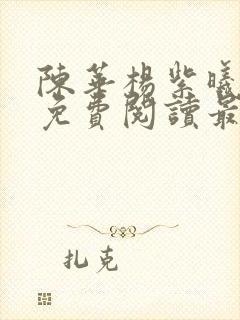 陳華楊紫曦
免費閱讀最
扎克